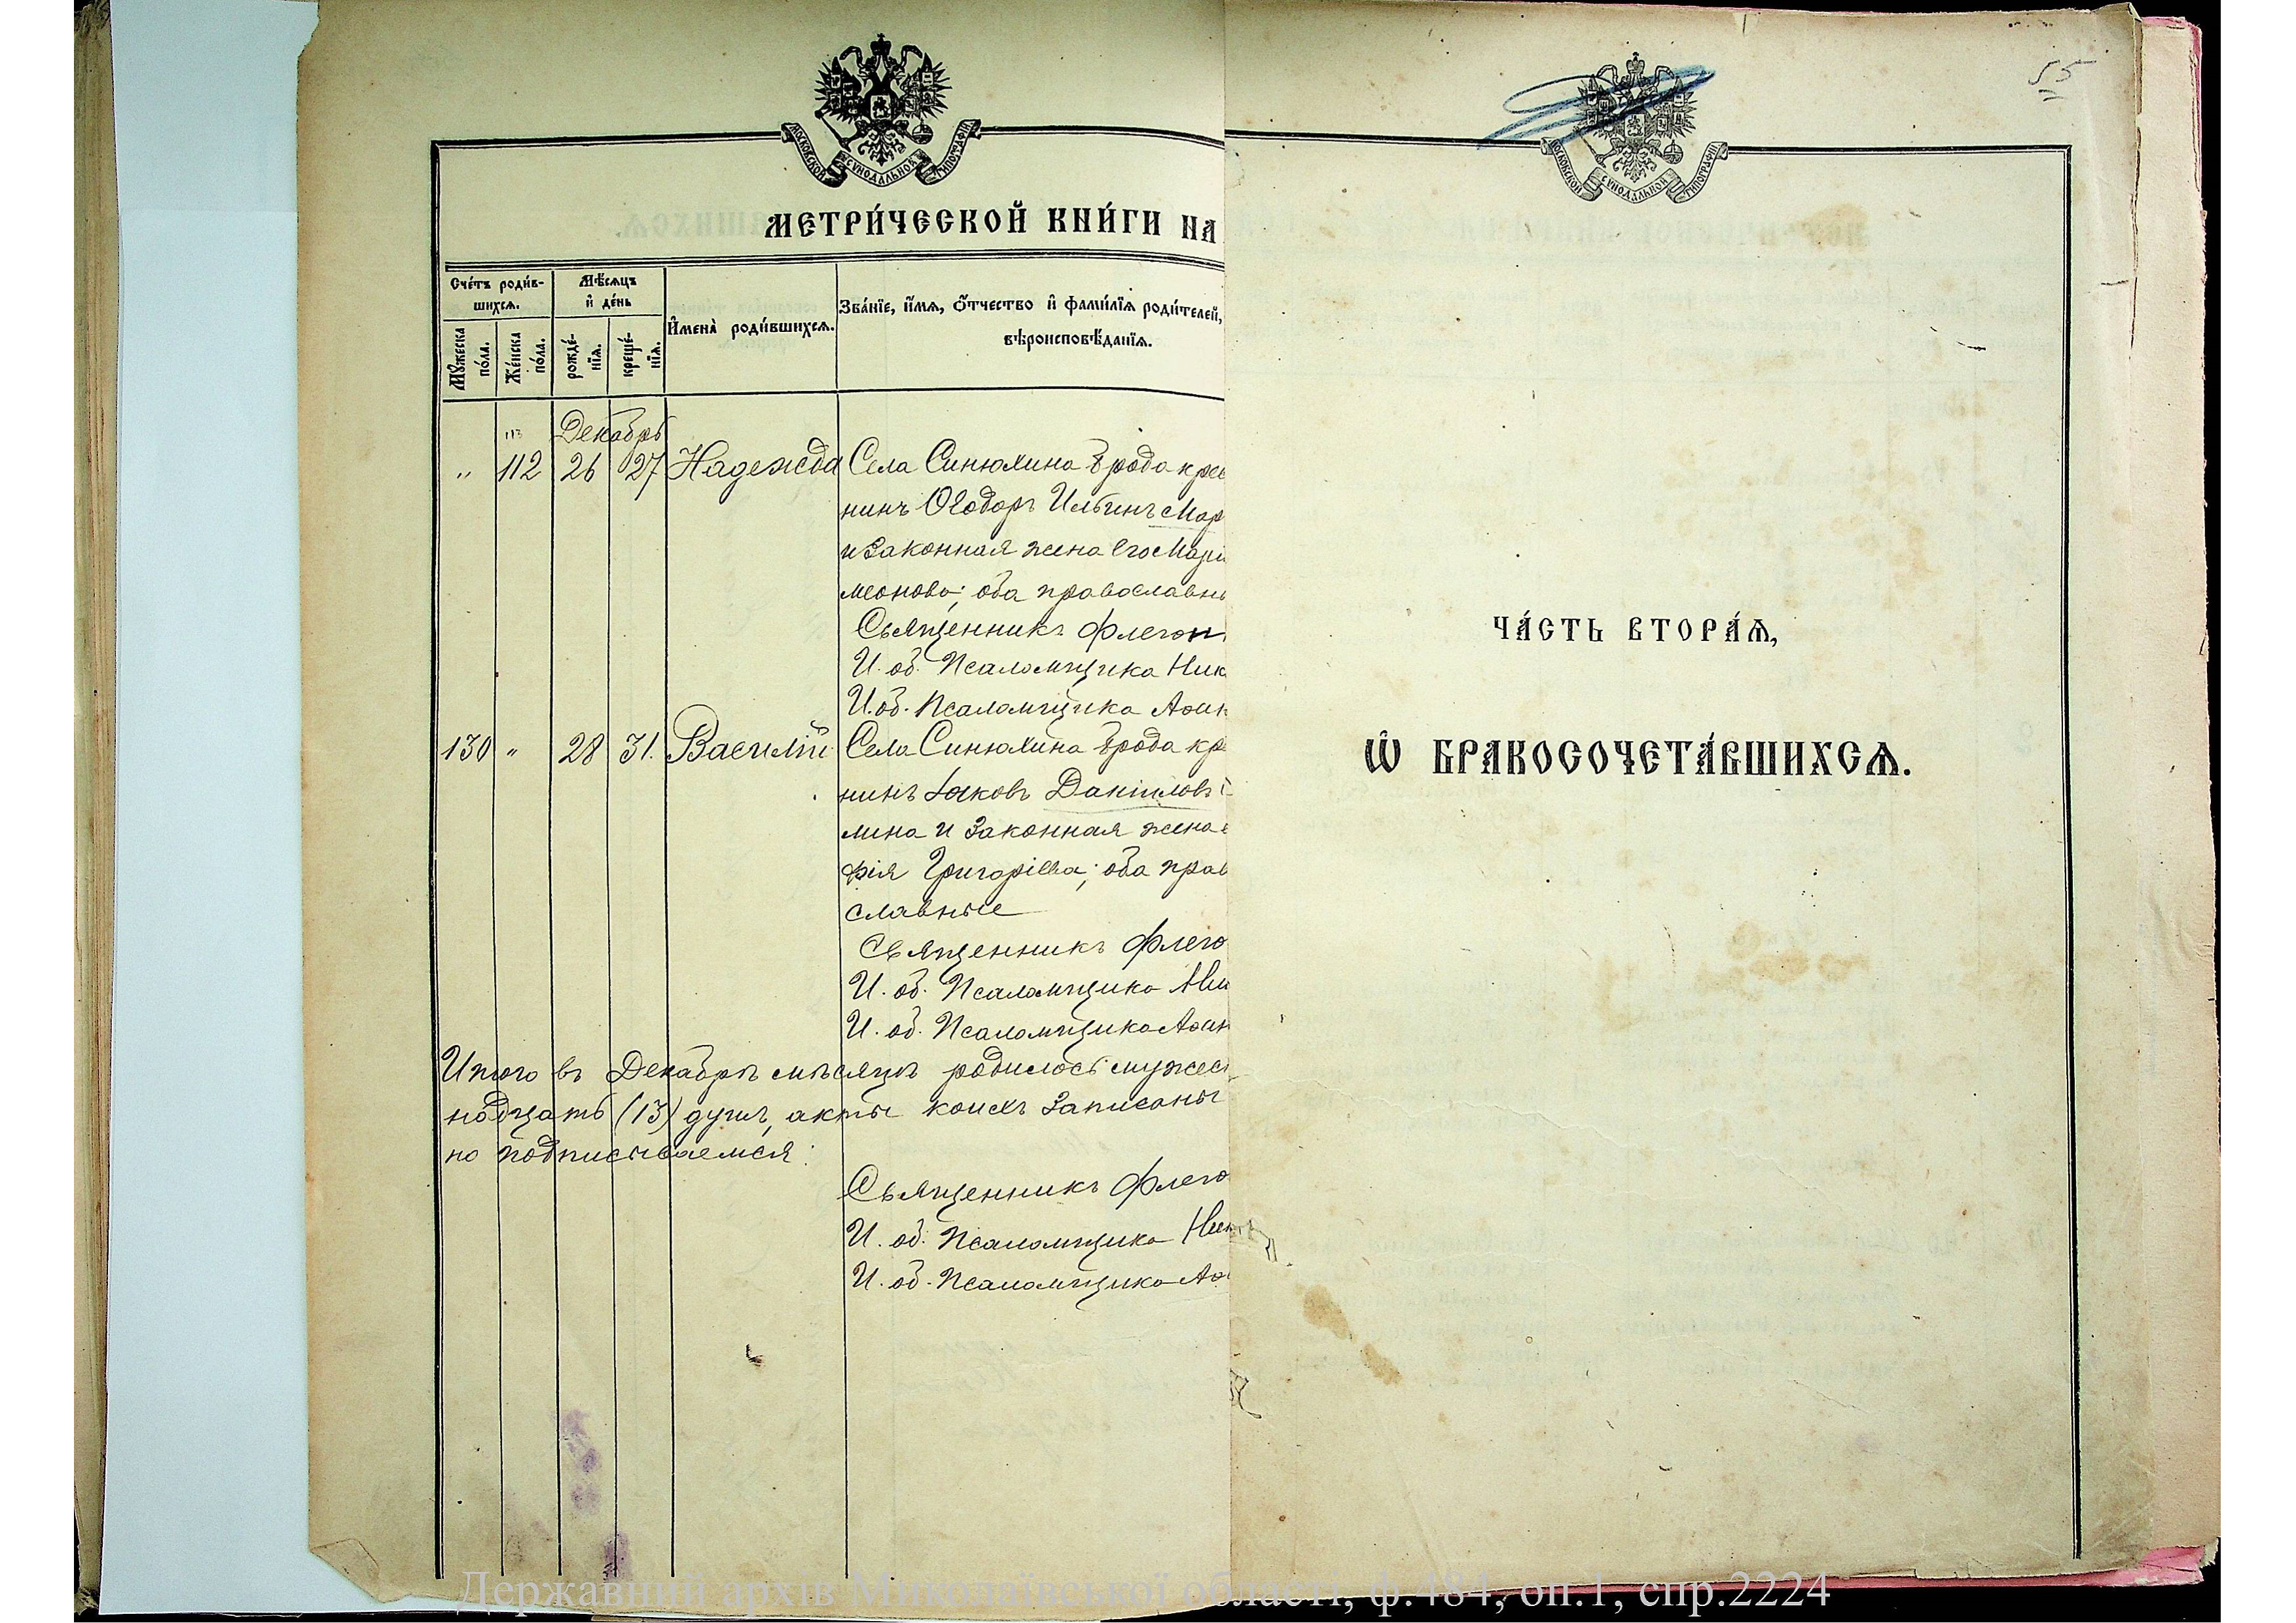 55
МОСКОВСКОЙ СУНОДАЛЬНОЙ ТИПОГРАФІИ
МЕТРИ́ЧЕСКОЙ КНИ́ГИ НА
Сче́тъ роди́в-
шихсѧ.
Мꙋжеска
по́ла.
Же́нска
по́ла.
Мѣ́сѧцъ
и де́нь
рожде́-
нїѧ.
креще́-
нїѧ.
И҆мена̀ роди́вшихсѧ.
Зва́нїе, и҆́мѧ, ѻ҆́тчество и҆ фами́лїѧ роди́телей,
вѣроисповѣ́данїѧ.
Декабрь
„ 112 26 27 Надежда Села Синюхина Брода крес
нинъ Ѳеодоръ Ильинъ Мар
и законная жена его Марі
меонова; оба православны
Священникъ Флегон
И. об. Псаломщика Ник
И. об. Псаломщика Аѳин
130 „ 28 31. Василій Села Синюхина Брода кр
нинъ Іаковъ Даніиловъ
мина и законная жена е
фія Григоріева; оба прав
славные
Священникъ Флего
И. об. Псаломщика Ник
И. об. Псаломщика Аѳин
Итого въ Декабрѣ мѣсяцѣ родилось мужес
надцать (13) душъ, акты коихъ записаны
но подписываемся:
Священникъ Флего
И. об. Псаломщика Ник
И. об. Псаломщика Аѳ
МОСКОВСКОЙ СУНОДАЛЬНОЙ ТИПОГРАФІИ
ЧА́СТЬ ВТОРА́Ѧ,
Ѡ҆ БРАКОСОЧЕТА́ВШИХСѦ.
Державний архів Миколаївської області, ф.484, оп.1, спр.2224